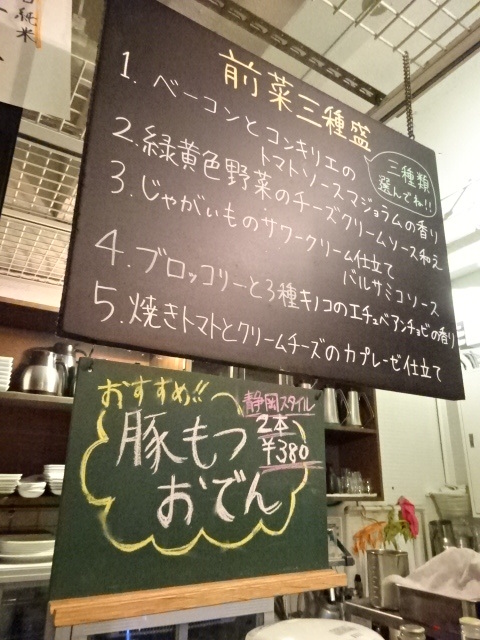 純米
前菜三種盛
三種類
選んでね!!
1. ベーコンとコンキリエの
トマトソースマジョラムの香り
2. 緑黄色野菜のチーズクリームソース和え
3. じゃがいものサワークリーム仕立て
バルサミコソース
4. ブロッコリーと3種キノコのエチュベアンチョビの香り
5. 焼きトマトとクリームチーズのカプレーゼ仕立て
おすすめ!!
静岡スタイル
2本
¥380
豚もつ
おでん